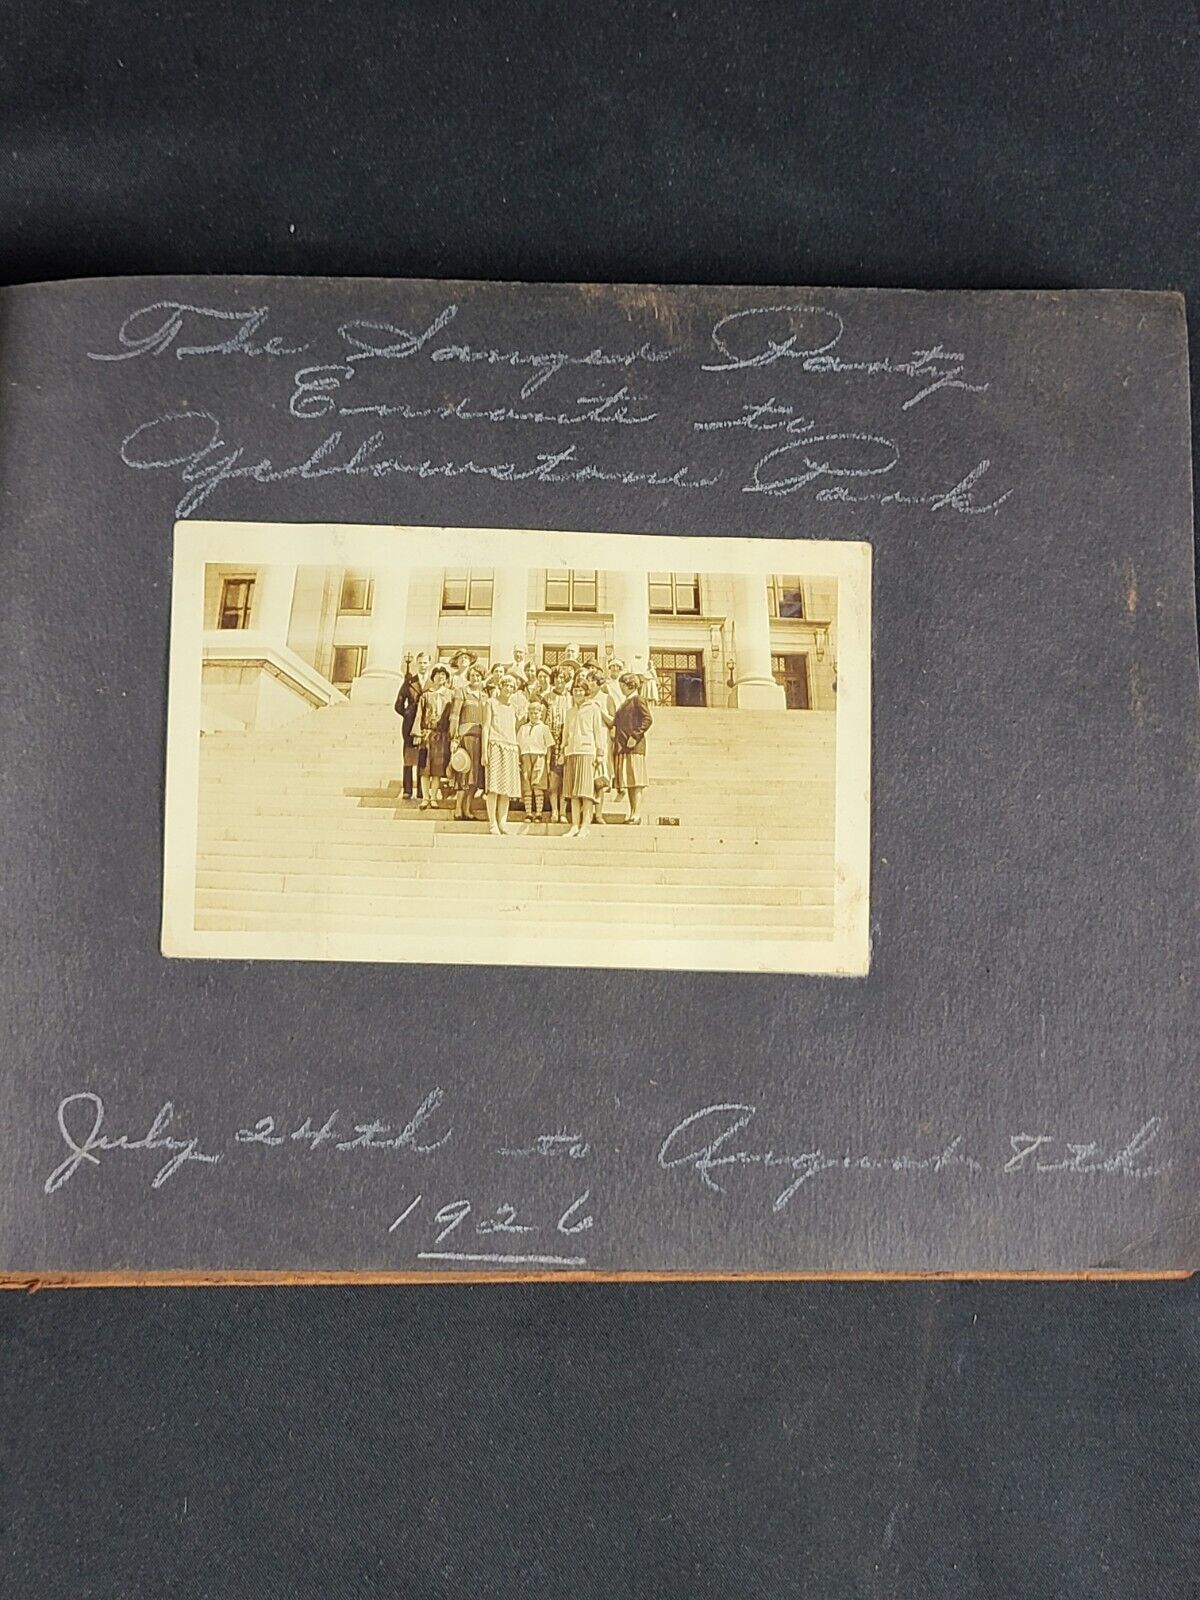 The Sanger Party
Enroute to
Yellowstone Park
July 24th to August 8th
1926